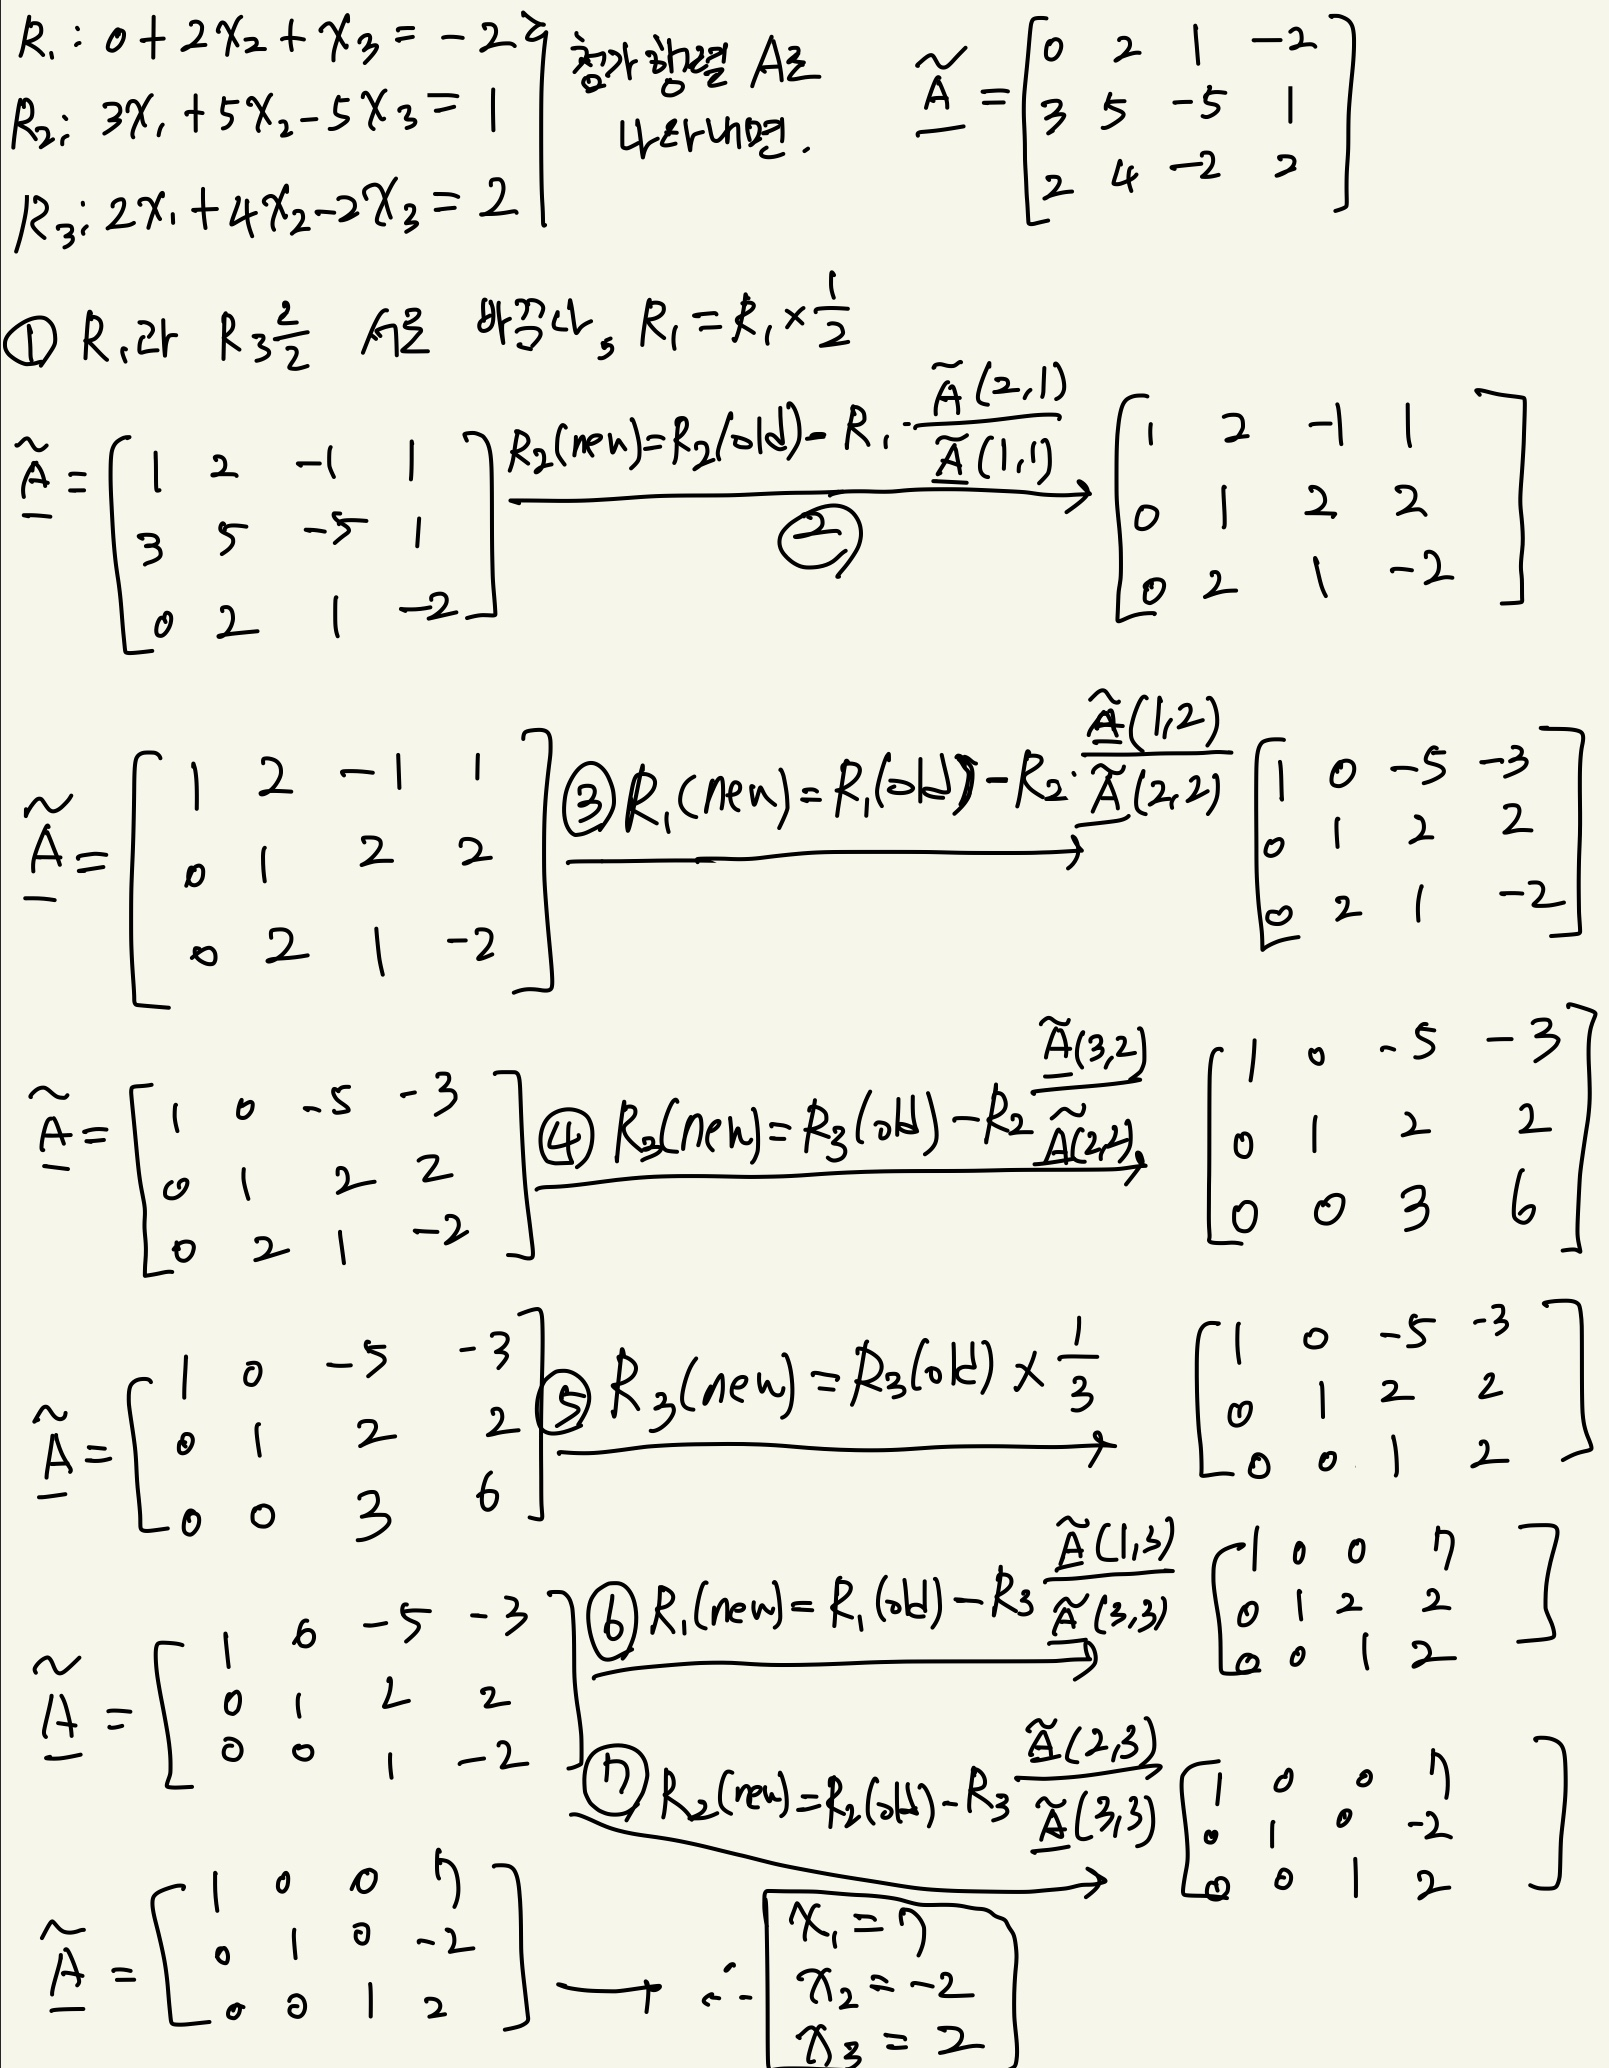 R₁: 0 + 2x₂ + x₃ = -2
R₂: 3x₁ + 5x₂ - 5x₃ = 1
R₃: 2x₁ + 4x₂ - 2x₃ = 2
첨가 행렬 A로
나타내면.
Ã = [0 2 1 -2
3 5 -5 1
2 4 -2 2]
① R₁과 R₃를 서로 바꾼다, R₁ = R₁ × 1/2
Ã = [1 2 -1 1
3 5 -5 1
0 2 1 -2]
② R₂(new) = R₂(old) - R₁ · Ã(2,1)/Ã(1,1)
[1 2 -1 1
0 1 2 2
0 2 1 -2]
Ã = [1 2 -1 1
0 1 2 2
0 2 1 -2]
③ R₁(new) = R₁(old) - R₂ · Ã(1,2)/Ã(2,2)
[1 0 -5 -3
0 1 2 2
0 2 1 -2]
Ã = [1 0 -5 -3
0 1 2 2
0 2 1 -2]
④ R₃(new) = R₃(old) - R₂ Ã(3,2)/Ã(2,2)
[1 0 -5 -3
0 1 2 2
0 0 3 6]
Ã = [1 0 -5 -3
0 1 2 2
0 0 3 6]
⑤ R₃(new) = R₃(old) × 1/3
[1 0 -5 -3
0 1 2 2
0 0 1 2]
Ã = [1 0 -5 -3
0 1 2 2
0 0 1 -2]
⑥ R₁(new) = R₁(old) - R₃ Ã(1,3)/Ã(3,3)
[1 0 0 7
0 1 2 2
0 0 1 2]
⑦ R₂(new) = R₂(old) - R₃ Ã(2,3)/Ã(3,3)
[1 0 0 7
0 1 0 -2
0 0 1 2]
Ã = [1 0 0 7
0 1 0 -2
0 0 1 2]
→ ∴ x₁ = 7
x₂ = -2
x₃ = 2